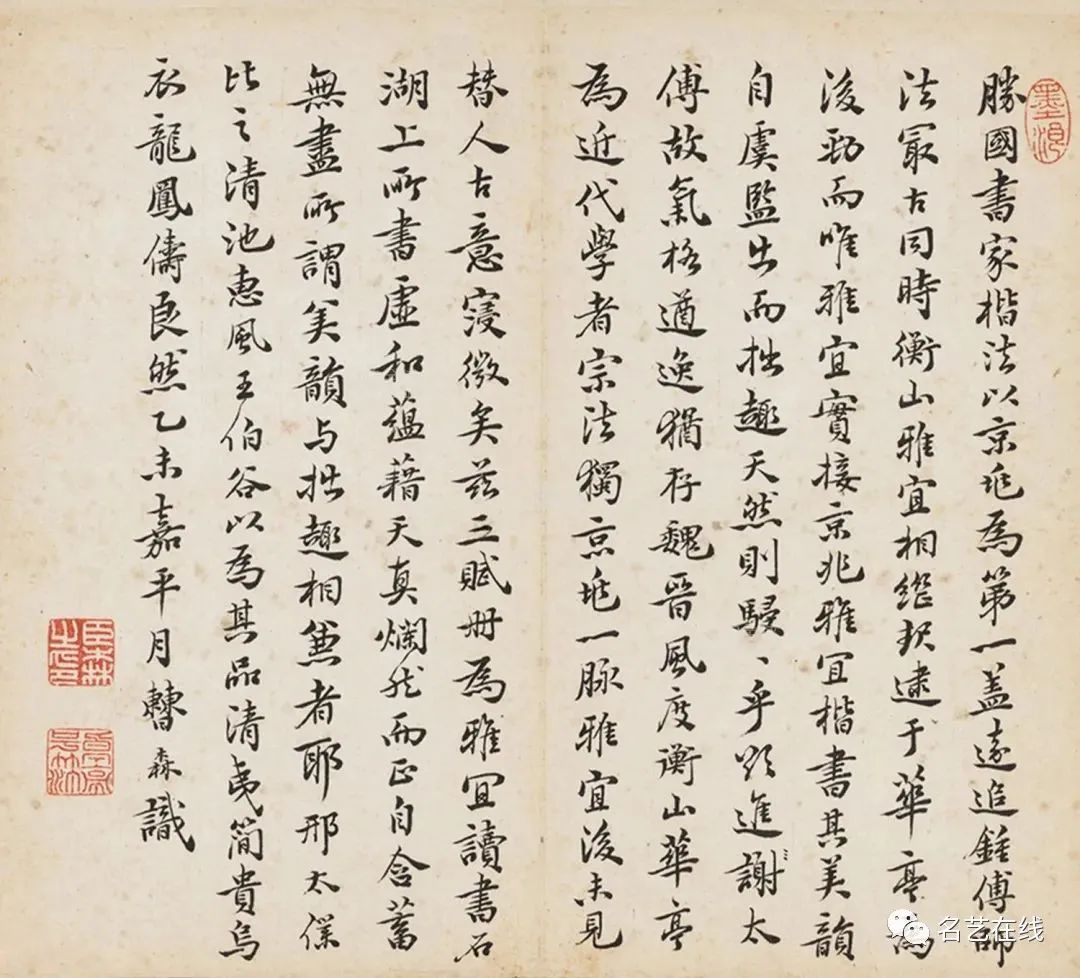 勝國書家楷法以京兆為第一蓋遠追鍾傅師
法冣古同時衡山雅宜相繼玦逮于華亭為
後勁而唯雅宜實接京兆雅宜楷書其美韻
自虞監出而拙趣天然則駸〻乎欲進謝太
傅故氣格遒逸猶存魏晉風度衡山華亭
為近代學者宗法獨京兆一脉雅宜後未見
替人古意寖微矣茲三賦册為雅宜讀書石
湖上所書虛和蘊藉天真爛然而正自含蓄
無盡所謂美韻与拙趣相兼者耶邢太僕
比之清池惠風王伯谷以為其品清夷簡貴烏
衣龍鳳儔良然乙未嘉平月 森識
墨池
臣森之印
名艺在线